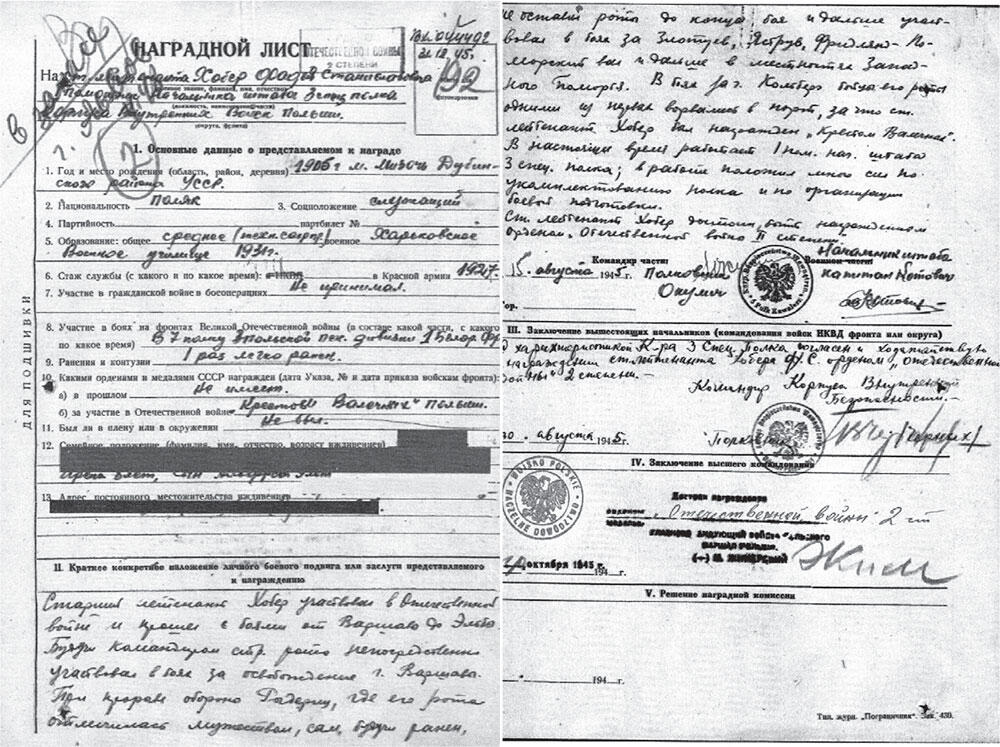 НАГРАДНОЙ ЛИСТ
ОТЕЧЕСТВЕННОЙ ВОЙНЫ
2 СТЕПЕНИ
31.12.45.
92
На ст. лейтенанта Хобер Станиславовича
Помощник начальника штаба 3 спец. полка
Корпуса Внутренних Войск Польши.
(округа, фронта)
2
1. Основные данные о представляемом к награде
1. Год и место рождения (область, район, деревня) 1905 г. м. Мизоч Дубин-
ского района УССР.
2. Национальность поляк 3. Соцположение служащий
4. Партийность партбилет №
5. Образование: общее среднее военное Харьковское
Военное училище 1931 г.
6. Стаж службы (с какого и по какое время): НКВД в Красной армии 1927
7. Участие в гражданской войне в босоперациях Не принимал.
8. Участие в боях на фронтах Великой Отечественной войны (в составе какой части, с какого
по какое время) В 7 полку польской пех. дивизии 1 Белор. Фр.
9. Ранения и контузии 1 раз легко ранен.
10. Какими орденами и медалями СССР награжден (дата Указа, № и дата приказа войскам фронта):
а) в прошлом Не имеет.
б) за участие в Отечественной войне Крестом "Валечных" Польши.
11. Был ли в плену или в окружении Не был.
12. Семейное положение (фамилия, имя, отчество, возраст иждивенцев)
13. Адрес постоянного местожительства иждивенцев
ДЛЯ ПОДШИВКИ
II. Краткое конкретное изложение личного боевого подвига или заслуги представляемого
к награждению
Старший лейтенант Хобер участвовал в Отечественной
войне и прошел с боями от Варшавы до Эльбы
Будучи командиром стр. роты непосредственно
участвовал в боях за освобождение г. Варшава.
При прорыве обороны где его рота
отличилась мужеством, сам, будучи ранен,
не оставил роты до конца боя и дальше участ-
вовал в боях за Злотув, Яструв, Фридлянд-По-
морский и дальше в местностях Запад-
ного Поморья. В боях за г. Кольберг бойцы его роты
одними из первых ворвались в порт, за что ст.
лейтенант Хобер был награжден „Крестом Валечных".
В настоящий время работает 1 пом. нач. штаба
3 спец. полка; в работе положил много сил по
укомплектованию полка и по организации
боевой подготовки.
Ст. лейтенант Хобер достоин быть награжденном
орденом „Отечественной войны II степени.
Командир части: Начальник штаба
Военного части:
15 августа 1945 г. Полковник капитан Котович
Окулич
III. Заключение вышестоящих начальников (командования войск НКВД фронта или округа)
С характеристикой К-ра 3 Спец. Полка согласен и ходатайствую
о награждении ст. лейтенанта Хобера Ф.С. орденом „Отечественной
войны" 2 степени.
Командир Корпуса Внутренней
Безопасности
30 августа 1945 г. Полковник
IV. Заключение высшего командования
WOJSKO POLSKIE
NACZELNE DOWÓDZTWO
Достоин награждения
орденом „Отечественной войны 2 ст
октября 1945 г. 194 г.
V. Решение наградной комиссии
194 г.
Тип. журн. „Пограничник". Зак. 430.